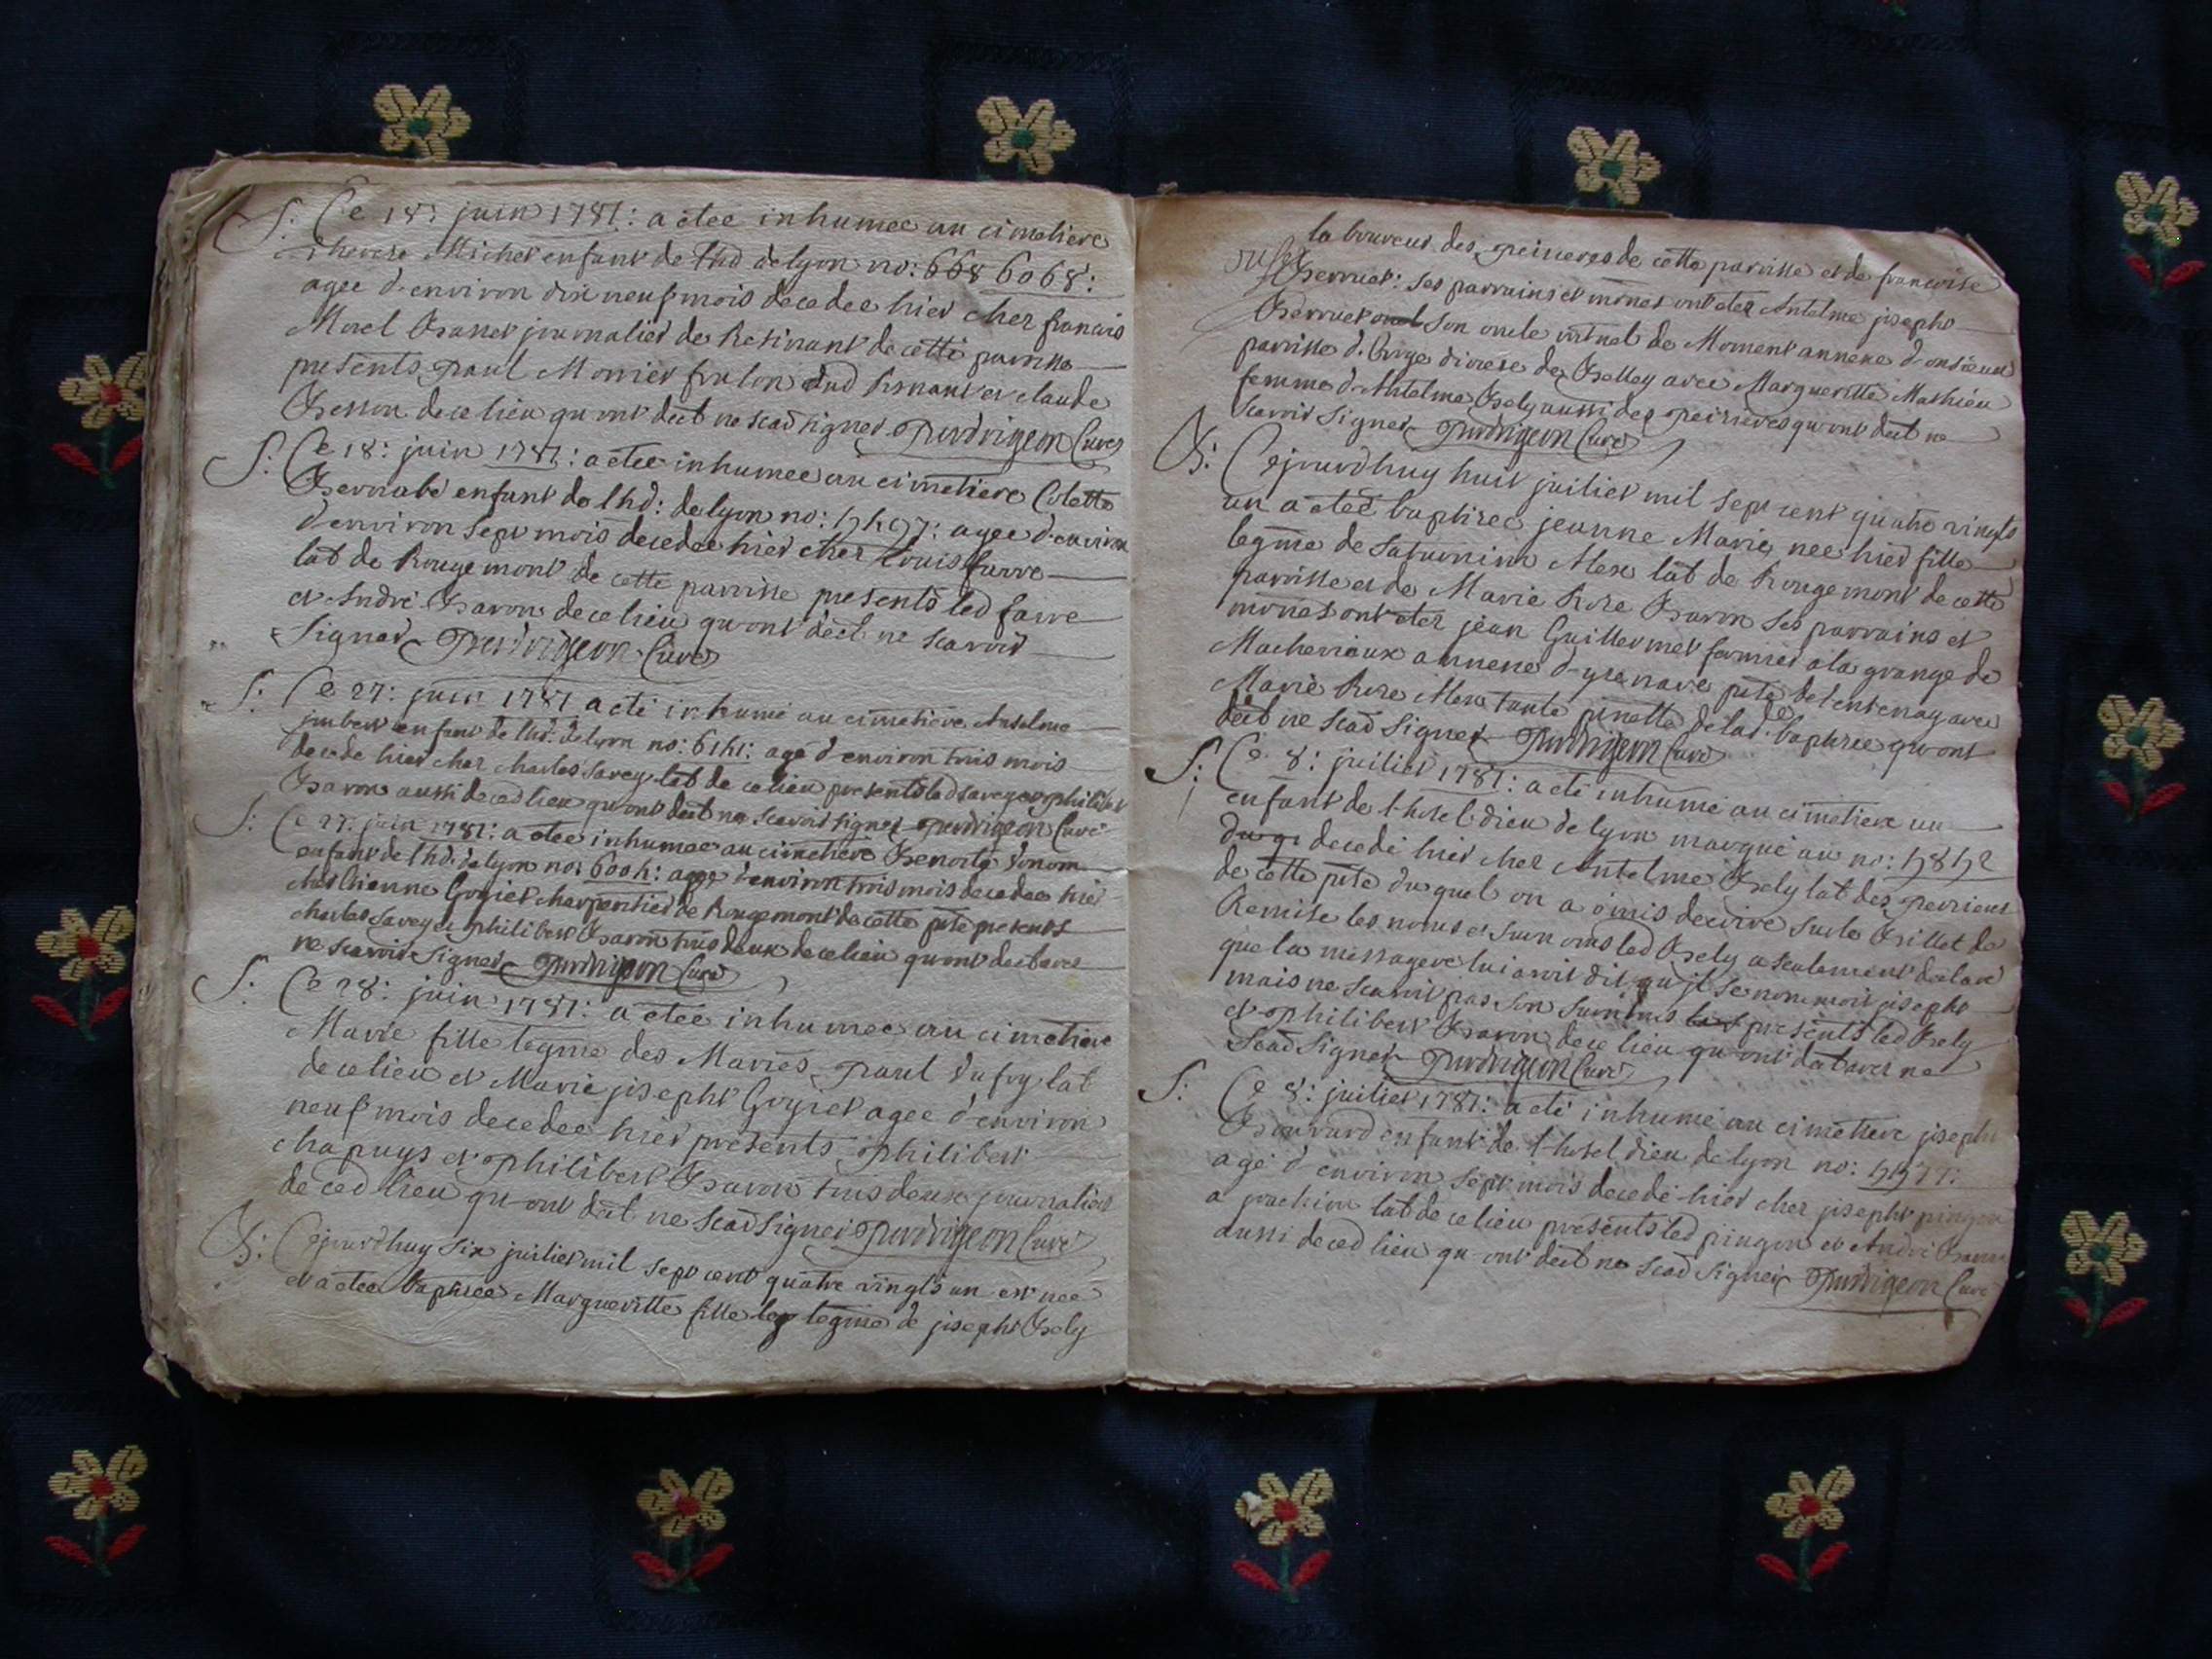 S: Ce 18: juin 1781: a etee inhumee au cimetiere
therese Michet enfant de lhd de lyon no: 668 6068:
agee d'environ dix neuf mois decedee hier chez francois
Morel Basset journalier de Resinant de cette parroisse
presents paul Monnier foulon dud Resnant et claude
Besson de ce lieu qu'ont deub ne scad signer Perdrigeon Cure
S: Ce 18: juin 1781: a etee inhumee au cimetiere Colette
Bernabé enfant de lhd: de lyon no: agee d'environ
d'environ sept mois decedee hier chez Louis favre
lab de Rougemont de cette parroisse presents led favre
et André Baron de ce lieu qu'ont deub ne scavoir
signer Perdrigeon Cure
S: Ce 27: juin 1781 a eté inhumé au cimetiere Anselme
jmbert enfant de lhd: de lyon no: 6141: agé d'environ trois mois
decede hier chez charles savey lab de ce lieu presents led savey et philibert
Baron aussi de ced lieu qu'ont deub ne scavoir signer Perdrigeon Cure
S: Ce 27: juin 1781: a etee inhumee au cimetiere Benoite
enfant de lhd: de lyon no: 6004: agee d'environ trois mois decedee hier
chez Etienne Goyet charpentier de Rougemont de cette psse presents
charles savey et philibert Baron tous deux de ce lieu qu'ont deub avec
ne scavoir signer Perdrigeon Cure
S: Ce 28: juin 1781: a etee inhumee au cimetiere
Marie fille legme des Mariés paul Dufoy lab
de ce lieu et Marie josepht Goyet agee d'environ
neuf mois decedee hier presents philibert
chapuys et philibert Baron tous deux journalier
de ced lieu qu'ont deub ne scad signer Perdrigeon Cure
B: Cejourdhuy six juillet mil sept cent quatre vingts un est nee
et a etee baptisee Margueritte fille leg legme de josepht Bely
laboureur des peirieres de cette parroisse et de francoise
Berruet: ses parrains et mnes ont etez Antelme josepht
Berruet son oncle de Moment annexe d'
parroisse d' diocese de Belley avec Margueritte Mathieu
femme d'Antelme Bely aussi des peirieres qu'ont deub ne
scavoir signer Perdrigeon Cure
B: Cejourdhuy huit juillet mil sept cent quatre vingts
un a etee baptisee jeanne Marie nee hier fille
legme de saturnin Mex lab de Rougemont de cette
parroisse et de Marie Rose Baron ses parrains et
mnes ont etez jean Guillermet fermier a la grange de
Macheriaux annexe d'yzenave psse de lentenay avec
Marie Rose Mex tante de lad. baptisee qu'ont
deub ne scad signer Perdrigeon Cure
S: Ce 8: juillet 1781: a eté inhumé au cimetiere un
enfant de l'hotel dieu de lyon marqué au no:
decedé hier chez Antelme Bely lab des peirieres
de cette psse duquel on a omis decrire sur le Billet de
Remise les noms et surnoms led Bely a seulement declaré
que la messagere lui avoit dit qu'il se nommoit josepht
mais ne scavoit pas son surnoms presents led Bely
et philibert Baron de ce lieu qu'ont deub avec ne
scad signer Perdrigeon Cure
S: Ce 8: juillet 1781: a eté inhumé au cimetiere joseph
Bouvard enfant de l'hotel dieu de lyon no:
agé d'environ sept mois decedé hier chez josepht pingon
a joachim lab de ce lieu presents led pingon et André Baron
aussi de ced lieu qu'ont deub ne scad signer Perdrigeon Cure